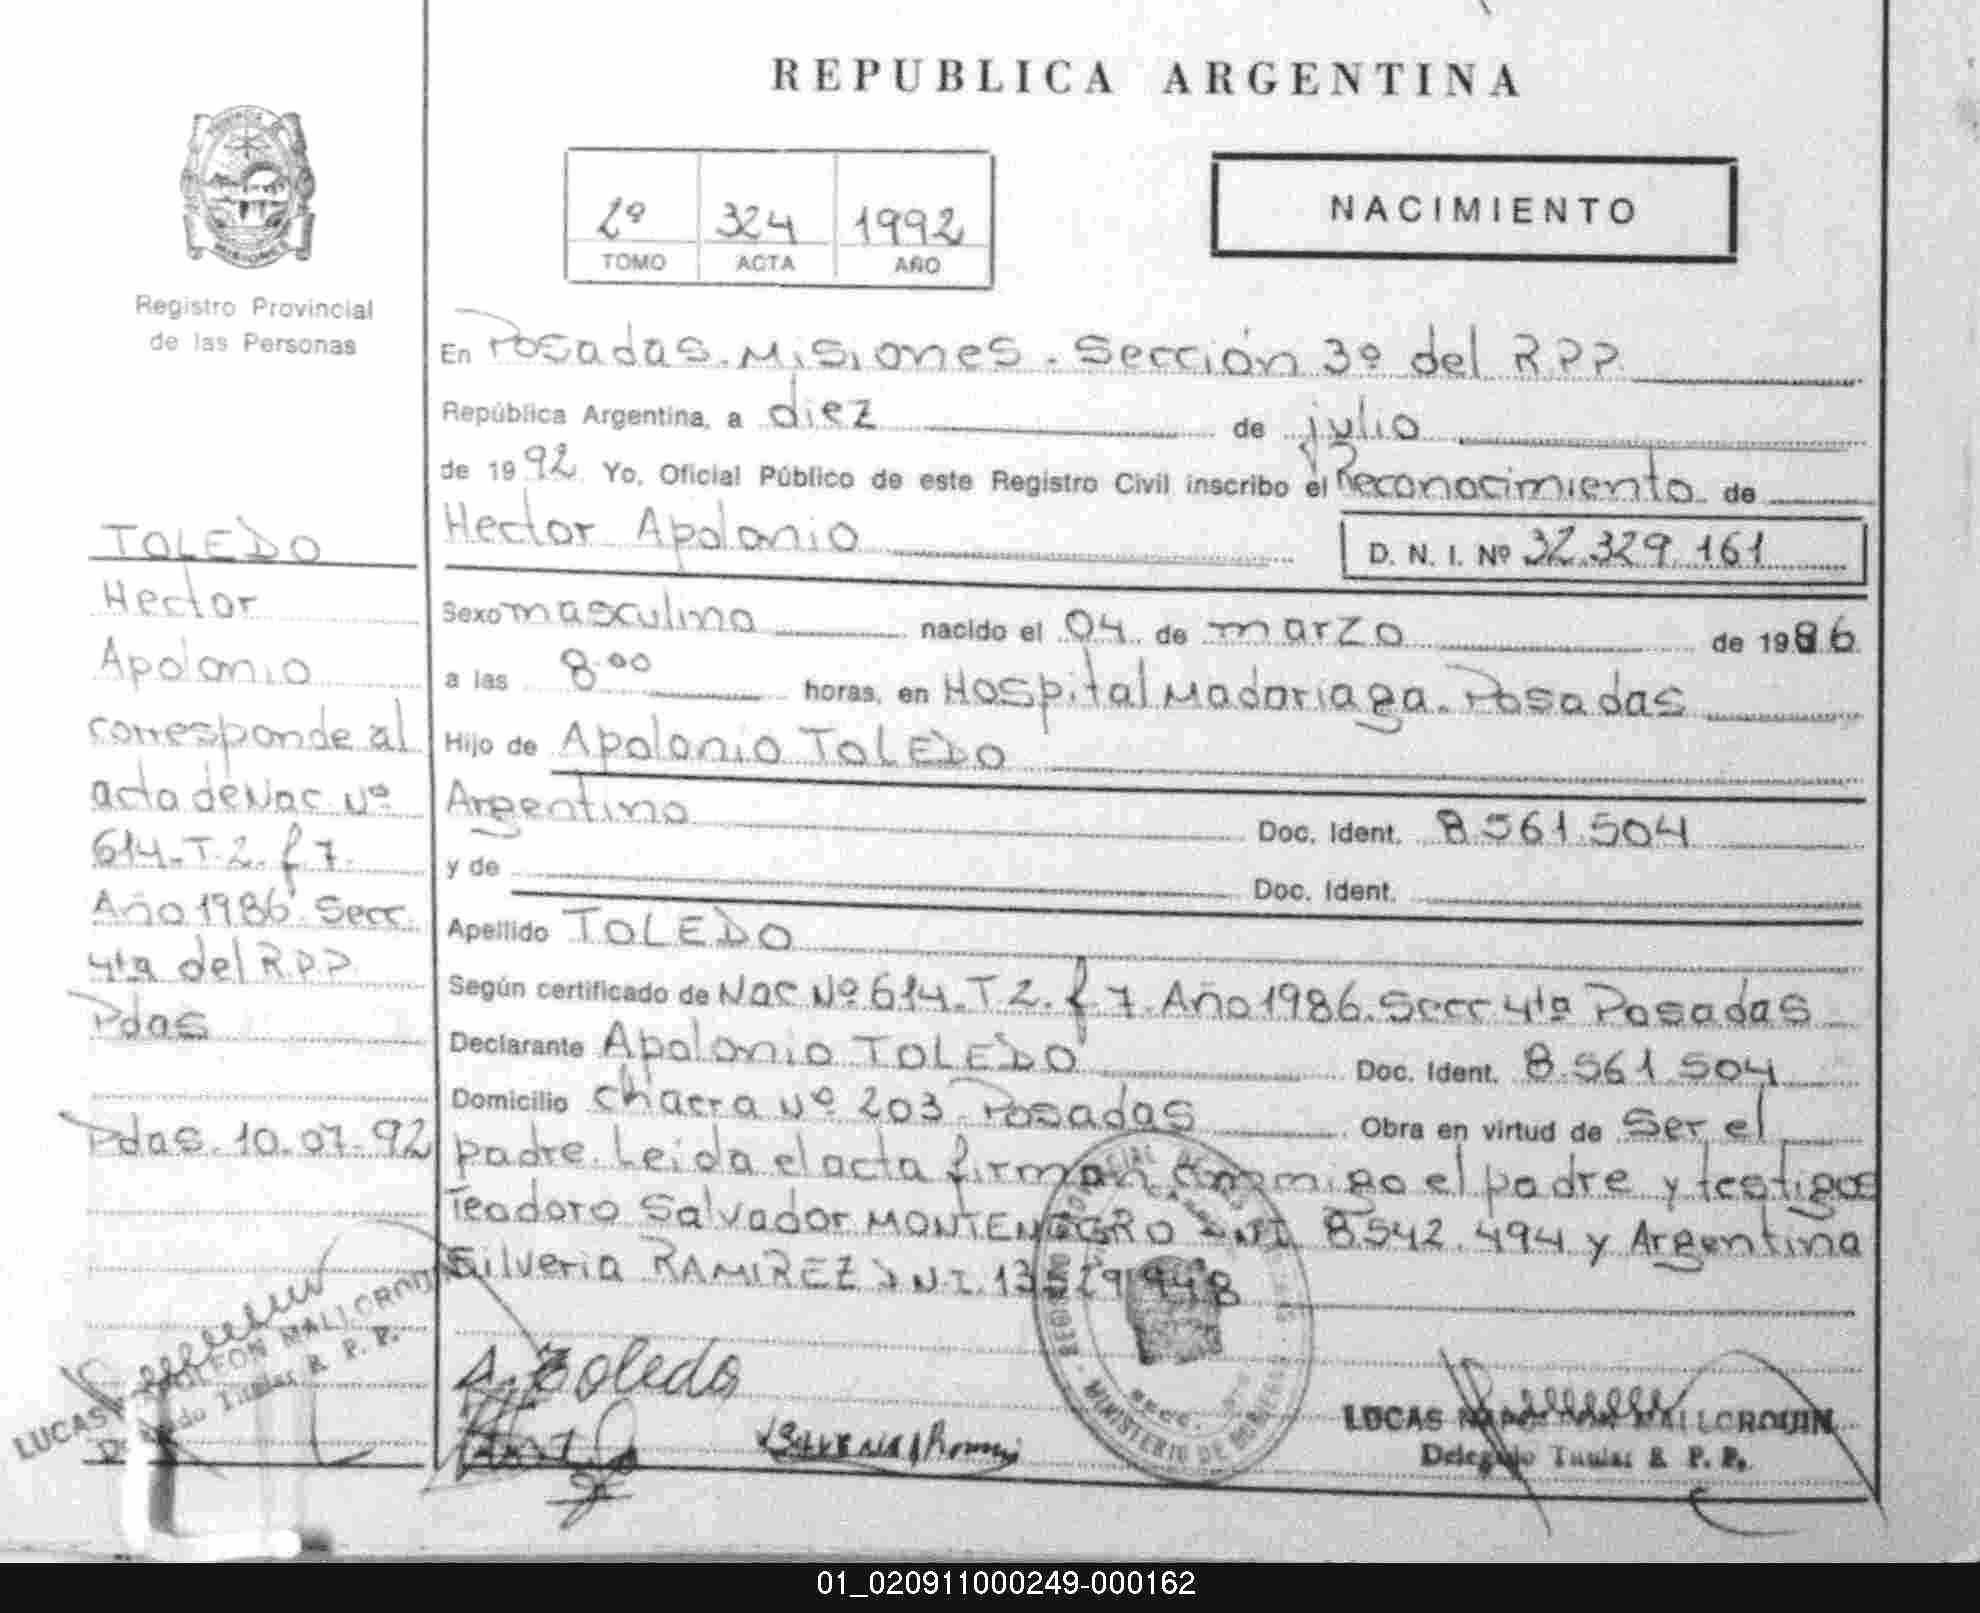 REPUBLICA ARGENTINA
2º 324 1992
TOMO ACTA AÑO
NACIMIENTO
Registro Provincial
de las Personas
En Posadas. Misiones. Sección 3º del R.P.P.
República Argentina, a diez de julio
de 1992 Yo, Oficial Público de este Registro Civil inscribo el Reconocimiento de
Hector Apolonio D. N. I. Nº 32.329.161
Sexo masculino nacido el 04 de marzo de 1986
a las 8.00 horas, en Hospital Madariaga. Posadas
Hijo de Apolonio TOLEDO
Argentino Doc. Ident. 8.561.504
y de Doc. Ident.
Apellido TOLEDO
Según certificado de Nac Nº 614. T 2. f 7. Año 1986. Secc 4ta Posadas
Declarante Apolonio TOLEDO Doc. Ident. 8.561.504
Domicilio Chacra Nº 203 Posadas Obra en virtud de Ser el
padre. Leida el acta firman conmigo el padre y testigos
Teodoro Salvador MONTENEGRO D.N.I. 8.542.494 y Argentina
Silveria RAMIREZ D.N.I.
A. Toledo
LUCAS NAPOLEON MALLORQUIN
Delegado Titular R. P. P.
MINISTERIO DE
TOLEDO
Hector
Apolonio
corresponde al
acta de Nac Nº
614. T. 2. f 7.
Año 1986 Secc.
4ta del R.P.P.
Pdas
Pdas. 10. 07. 92
LUCAS NAPOLEON MALLORQUIN
Delegado Titular R. P. P.
01_020911000249-000162